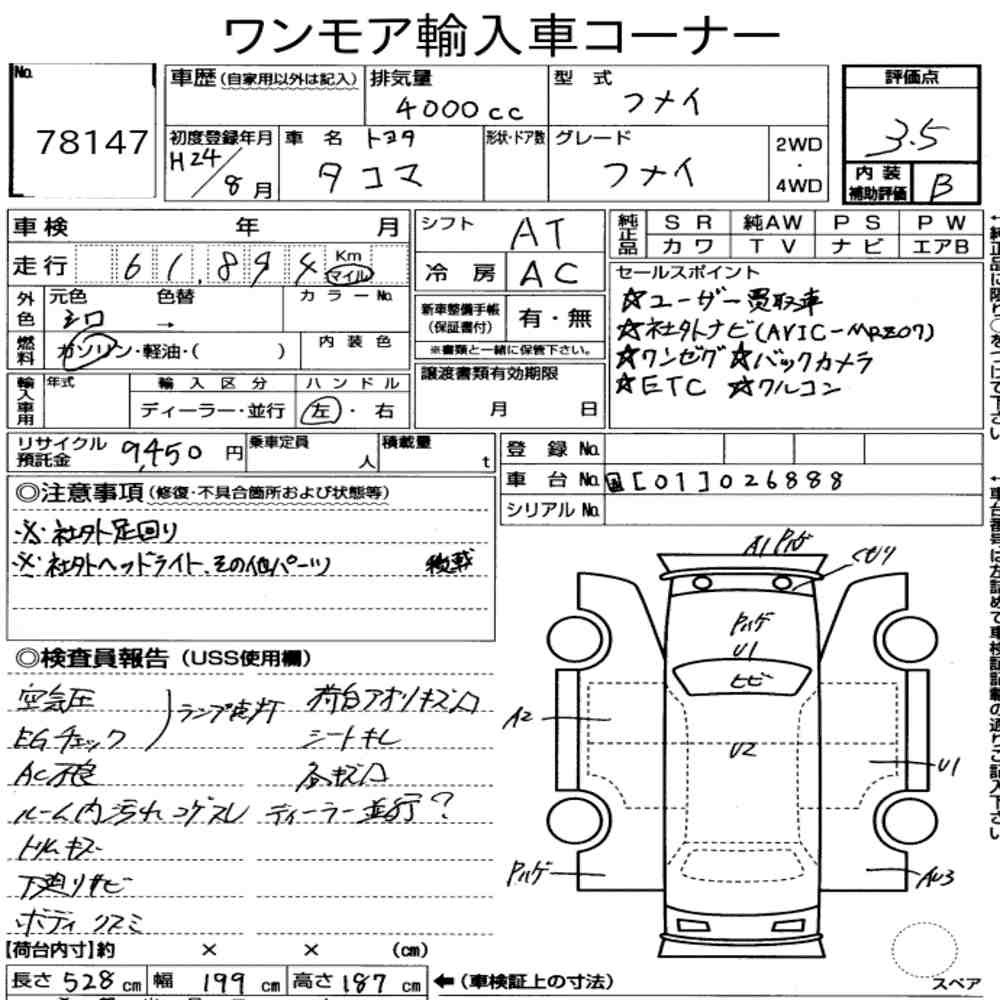 ワンモア輸入車コーナー
No. 78147
車歴(自家用以外は記入)
排気量 4000cc
型式 フメイ
評価点 3.5
初度登録年月 H24/8月
車名 トヨタ タコマ
形状・ドア数
グレード フメイ
2WD・4WD
内装補助評価 B
車検 年 月
走行 61,894 Km マイル
外色 元色 シロ 色替 → カラーNo.
燃料 ガソリン・軽油・( ) 内装色
輸入車用 年式 輸入区分 ディーラー・並行 ハンドル 左・右
シフト AT
冷房 AC
新車整備手帳(保証書付) 有・無
※書類と一緒に保管下さい。
譲渡書類有効期限 月 日
純正品 SR 純AW PS PW
カワ TV ナビ エアB
セールスポイント
☆ユーザー買取車
☆社外ナビ(AVIC-MRZ07)
☆ワンセグ ☆バックカメラ
☆ETC ☆クルコン
リサイクル預託金 9,450円
乗車定員 人
積載量 t
登録No.
車台No. 国[01]026888
シリアルNo.
◎注意事項(修復・不具合箇所および状態等)
※社外足回り
※社外ヘッドライト、その他パーツ 積載
◎検査員報告(USS使用欄)
空気圧
EGチェック ランプ点灯
AC不良
ルーム内汚れコゲスレ
トリムキズ
下廻リサビ
ボディクスミ
荷台アオリキズ凹
シートキレ
各キズ凹
ディーラー並行?
A1 Pハゲ
クモリ
Pハゲ
U1
ヒビ
A2
U2
U1
Pハゲ
AU3
スペア
【荷台内寸】約 × × (cm)
長さ 528cm 幅 199cm 高さ 187cm
←(車検証上の寸法)